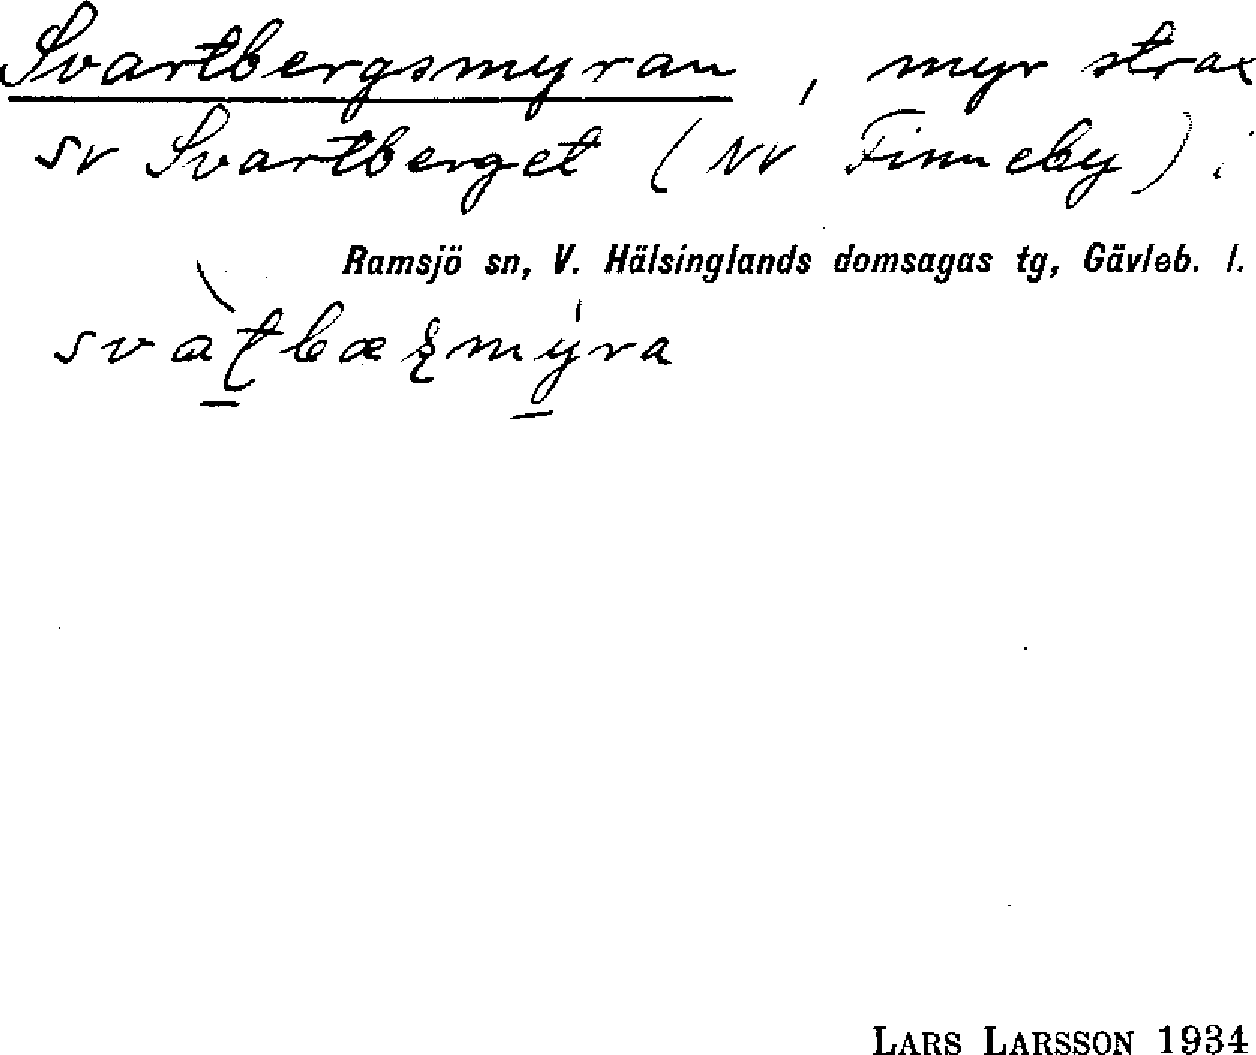 Svartbergsmyran, myr strax
SV Svartberget (NV Finneby) i
Ramsjö sn, V. Hälsinglands domsagas tg, Gävleb. l.
LARS LARSSON 1934